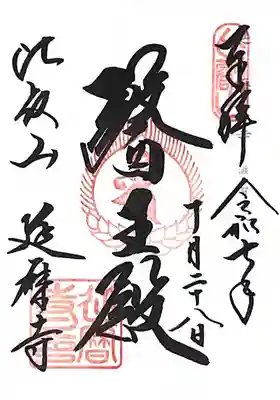 奉拝 令和七年
十月二十八日
醫王殿
比叡山 延暦寺